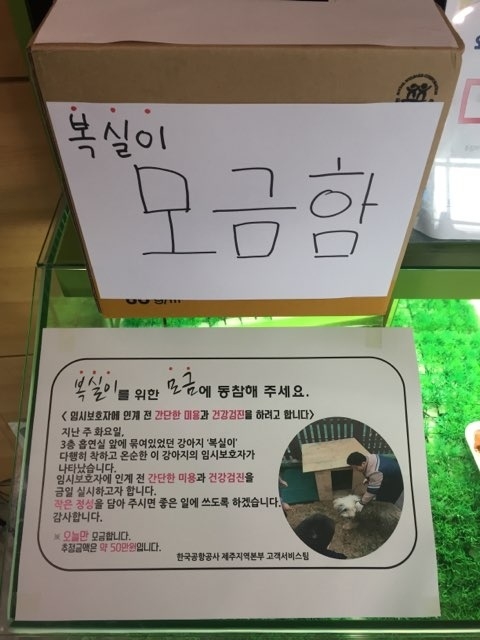 복실이
모금함
복실이를 위한 모금에 동참해 주세요.
< 임시보호자에 인계 전 간단한 미용과 건강검진을 하려고 합니다>
지난 주 화요일,
3층 흡연실 앞에 묶여있었던 강아지 '복실이'
다행히 착하고 온순한 이 강아지의 임시보호자가
나타났습니다.
임시보호자에 인계 전 간단한 미용과 건강검진을
금일 실시하고자 합니다.
작은 정성을 담아 주시면 좋은 일에 쓰도록 하겠습니다.
감사합니다.
※ 오늘만 모금합니다.
추정금액은 약 50만원입니다.
한국공항공사 제주지역본부 고객서비스팀